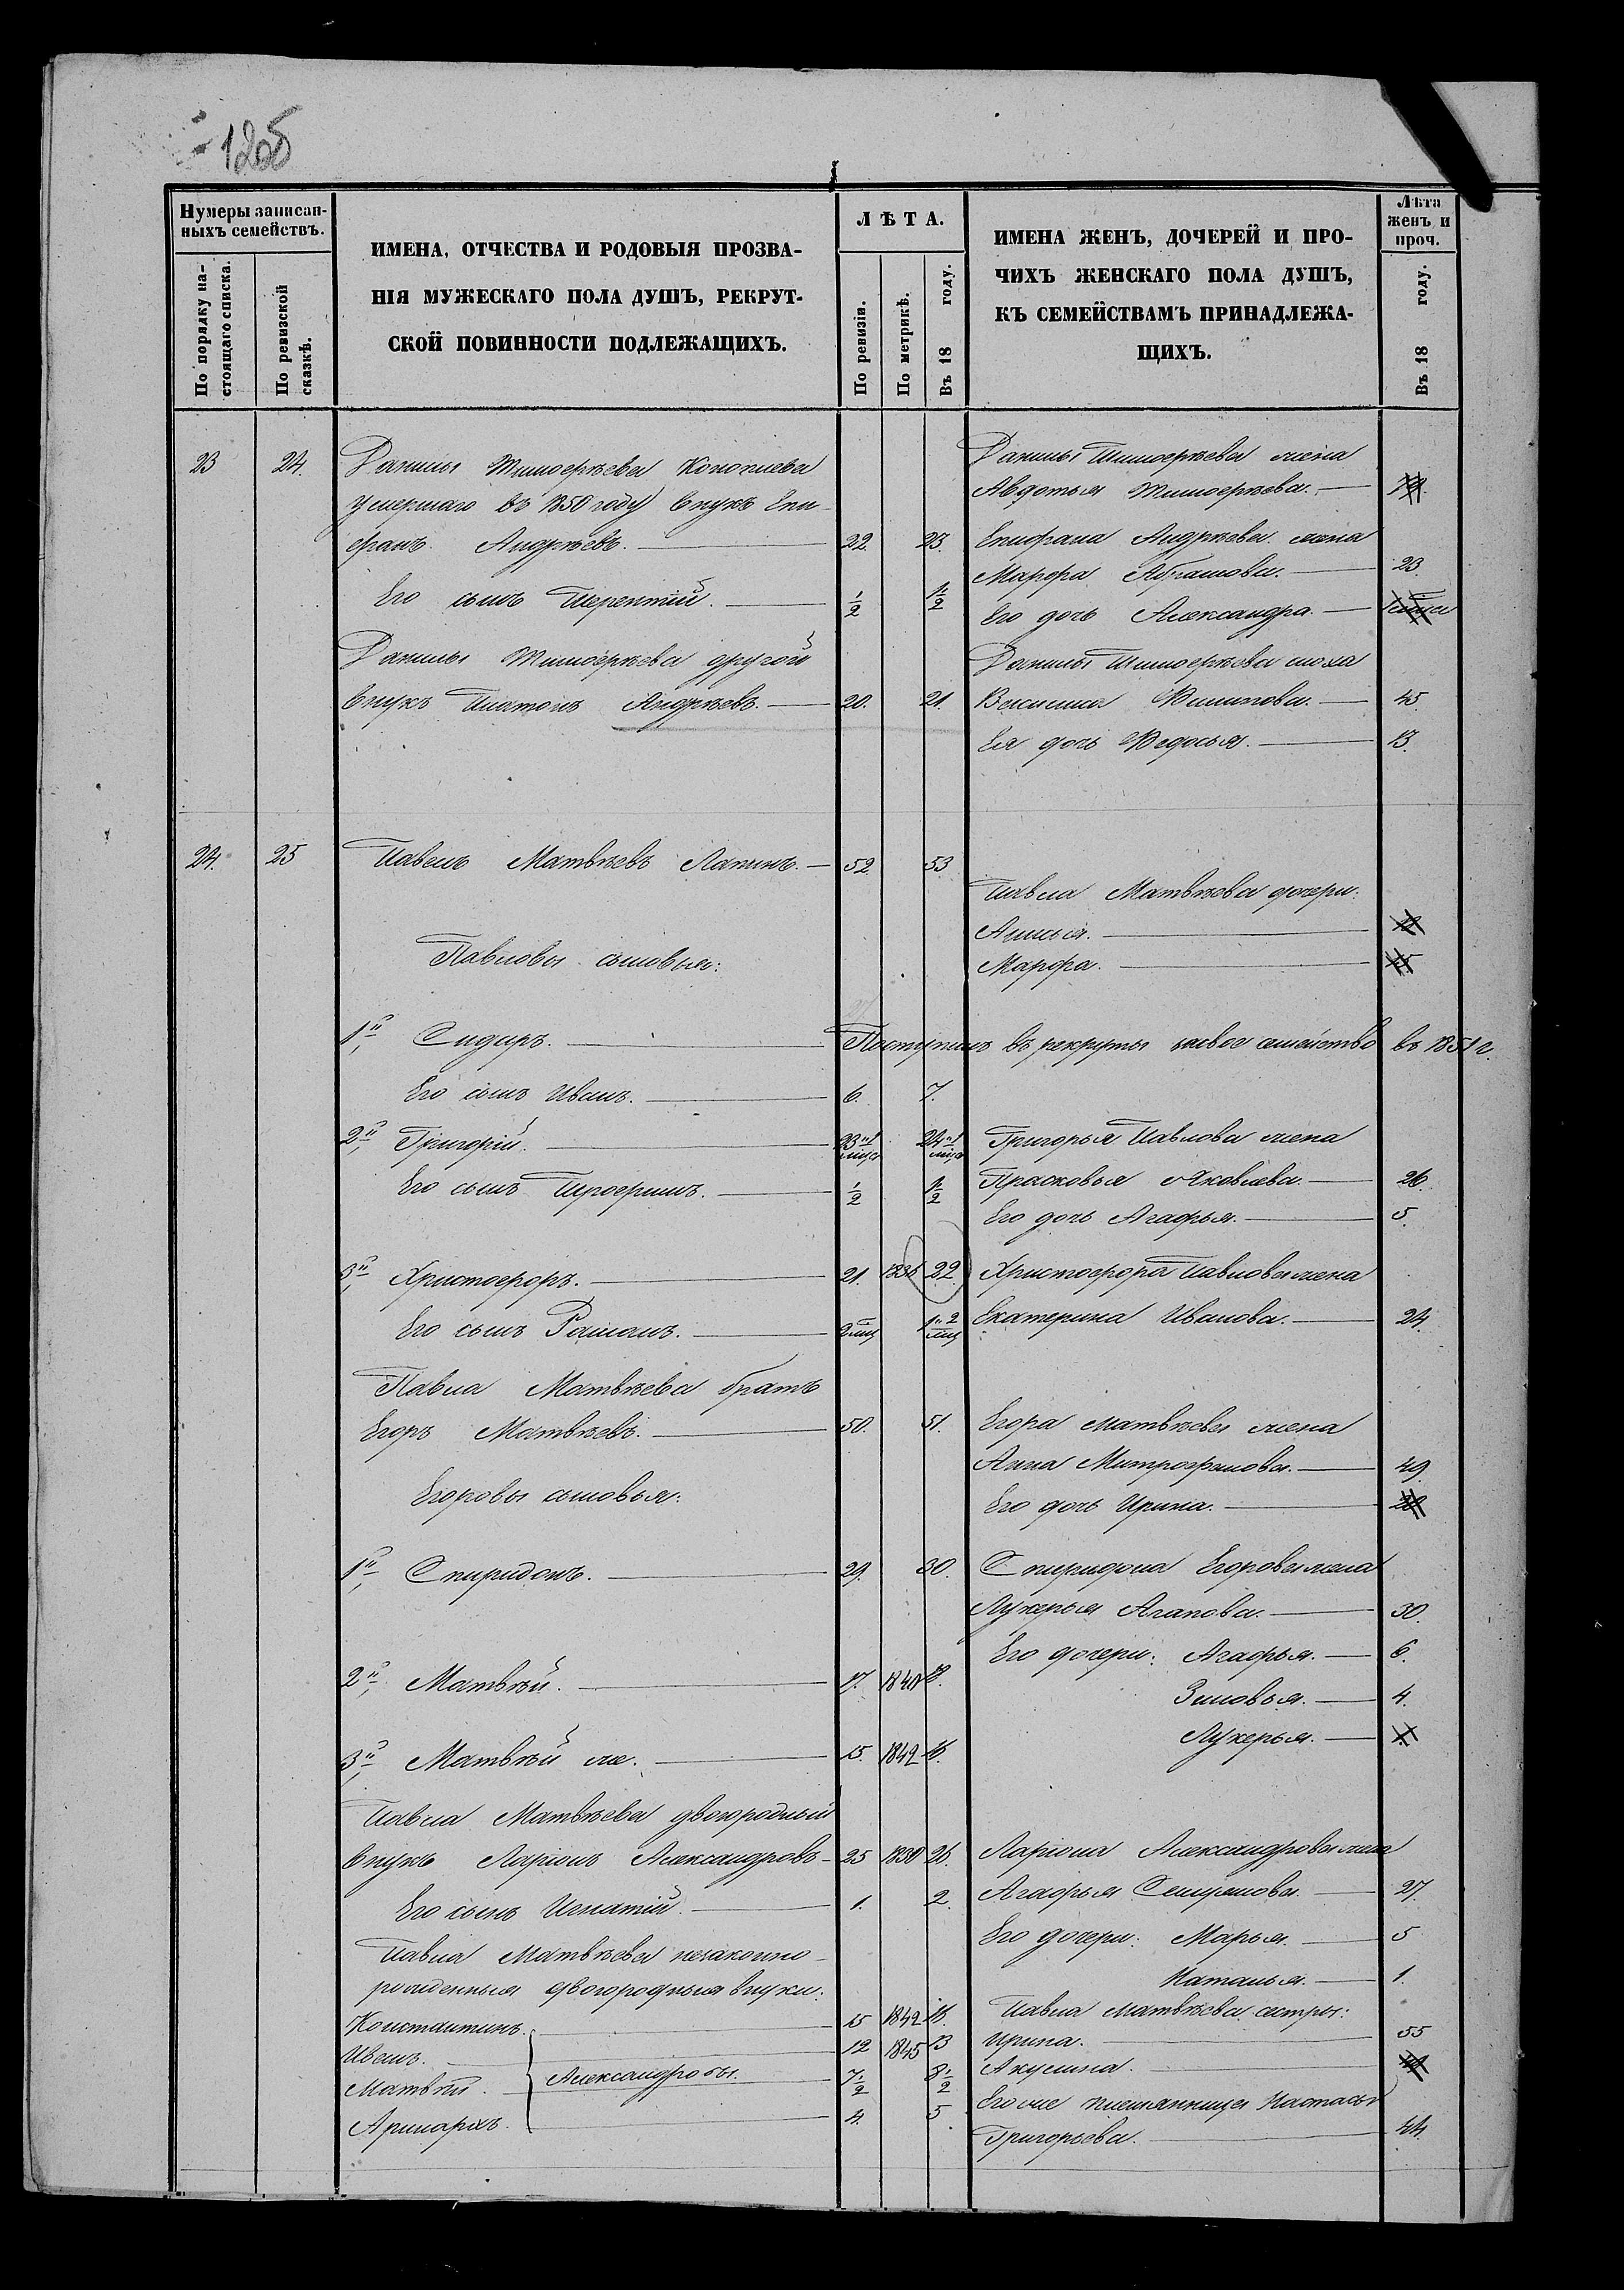 1205
Нумеры записан-
ныхъ семействъ.
По порядку на-
стоящаго списка.
По ревизской
сказкѣ.
ИМЕНА, ОТЧЕСТВА И РОДОВЫЯ ПРОЗВА-
НІЯ МУЖЕСКАГО ПОЛА ДУШЪ, РЕКРУТ-
СКОЙ ПОВИННОСТИ ПОДЛЕЖАЩИХЪ.
ЛѢТА.
По ревизіи.
По метрикѣ.
Въ 18 году.
ИМЕНА ЖЕНЪ, ДОЧЕРЕЙ И ПРО-
ЧИХЪ ЖЕНСКАГО ПОЛА ДУШЪ,
КЪ СЕМЕЙСТВАМЪ ПРИНАДЛЕЖА-
ЩИХЪ.
Лѣта
женъ и
проч.
Въ 18 году.
23 24. Данилы Тимоѳѣева Конопиева
умершаго въ 1850 году внукъ Епи-
фанъ Андрѣевъ. 22. 23.
Его сынъ Терентий. 1/2 1 1/2
Данилы Тимоѳѣева другой
внукъ Платонъ Андрѣевъ. 20. 21.
Данилы Тимоѳѣева жена
Авдотья Тимоѳѣева.
Епифана Андрѣева жена
Марфа Абрамова. 23.
Его дочь Александра.
Данилы Тимоѳѣева сноха
Василиса Филипова. 45.
Ея дочь Федосья. 13.
24. 25 Павелъ Матвѣевъ Лапинъ. 52. 53
Павла Матвѣева дочери:
Анисья.
Марфа.
Павловы сыновья:
1й, Сидаръ. Поступилъ въ рекруты за свое семейство въ 1851 г.
Его сынъ Иванъ. 6. 7.
2й, Григорій. 23 24
Его сынъ Трофимъ. 1/2 1 1/2
Григорья Павлова жена
Прасковья Яковлева. 26.
Его дочь Агафья. 5.
3й, Христофоръ. 21. 22
Его сынъ Романъ. 2 мц 1 2 мц
Христофора Павлова жена
Екатерина Иванова. 24.
Павла Матвѣева братъ
Егоръ Матвѣевъ. 50. 51.
Егора Матвѣева жена
Анна Митрофанова. 49.
Его дочь Ирина.
Егоровы сыновья:
1й, Спиридонъ. 29. 30.
Спиридона Егорова жена
Лукерья Агапова. 30.
Его дочери: Агафья. 6.
Зиновья. 4.
Лукерья.
2й, Матвѣй. 17. 1840 18.
3й, Матвѣй же. 15. 1842 16.
Павла Матвѣева двоюродный
внукъ Ларіонъ Александровъ 25 1830 26.
Его сынъ Игнатій. 1. 2.
Ларіона Александрова жена
Агафья Семенова. 27.
Его дочери: Марья. 5
Наталья. 1.
Павла Матвѣева незаконно-
рожденныя двоюродныя внуки:
Константинъ. 15 1842 16.
Иванъ. 12 1845 13
Матвѣй. Александровы. 7 1/2 8 1/2
Аринархъ. 4. 5
Павла Матвѣева сестры:
Ирина. 55
Акулина.
Его же племянница Настасья
Григорьева. 44.